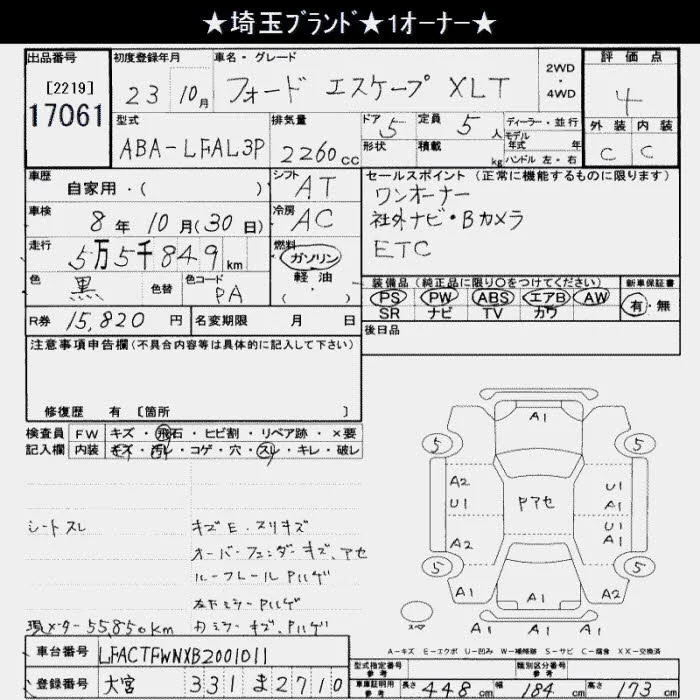 ★埼玉ブランド★1オーナー★
出品番号
[2219]
17061
初度登録年月
23 10月
車名・グレード
フォード エスケープ XLT
2WD
・
4WD
評価点
4
型式
ABA-LFAL3P
排気量
2260cc
ドア
5
定員
5人
ディーラー・並行
モデル
年式 年
ハンドル 左・右
形状
積載
kg
外装 内装
C C
車歴
自家用・( )
シフト
AT
セールスポイント (正常に機能するものに限ります)
ワンオーナー
社外ナビ・Bカメラ
ETC
車検
8年 10月(30日)
冷房
AC
走行
5万5千849km
燃料
ガソリン
軽油
( )
色
黒
色替
色コード
PA
装備品 (純正品に限り○をつけてください)
PS PW ABS エアB AW
SR ナビ TV カワ
新車保証書
有・無
R券 15,820円
名変期限 月 日
後日品
注意事項申告欄(不具合内容等は具体的に記入して下さい)
修復歴 有 [箇所 ]
検査員
記入欄
FW キズ・飛石・ヒビ割・リペア跡・×要
内装 キズ・汚れ・コゲ・穴・スレ・キレ・破レ
シートスレ
キズE・スリキズ
オーバーフェンダーキズ、アセ
ルーフレールPハゲ
左下ミラーPハゲ
現メーター55,850km
A1
5 5
A2
U1
Pアセ
U1
A1
U1
A1
A2
5 5
A1
A1
A2
A1 A1 A1
スペア
A-キズ E-エクボ U-凹み W-補修跡 S-サビ C-腐食 XX-交換済
車台番号
LFACTFWNXB2001011
登録番号
大宮 331 ま 2710
型式指定番号
参考
類別区分番号
参考
車庫証明用
参考
長さ 448cm
幅 184cm
高さ 173cm